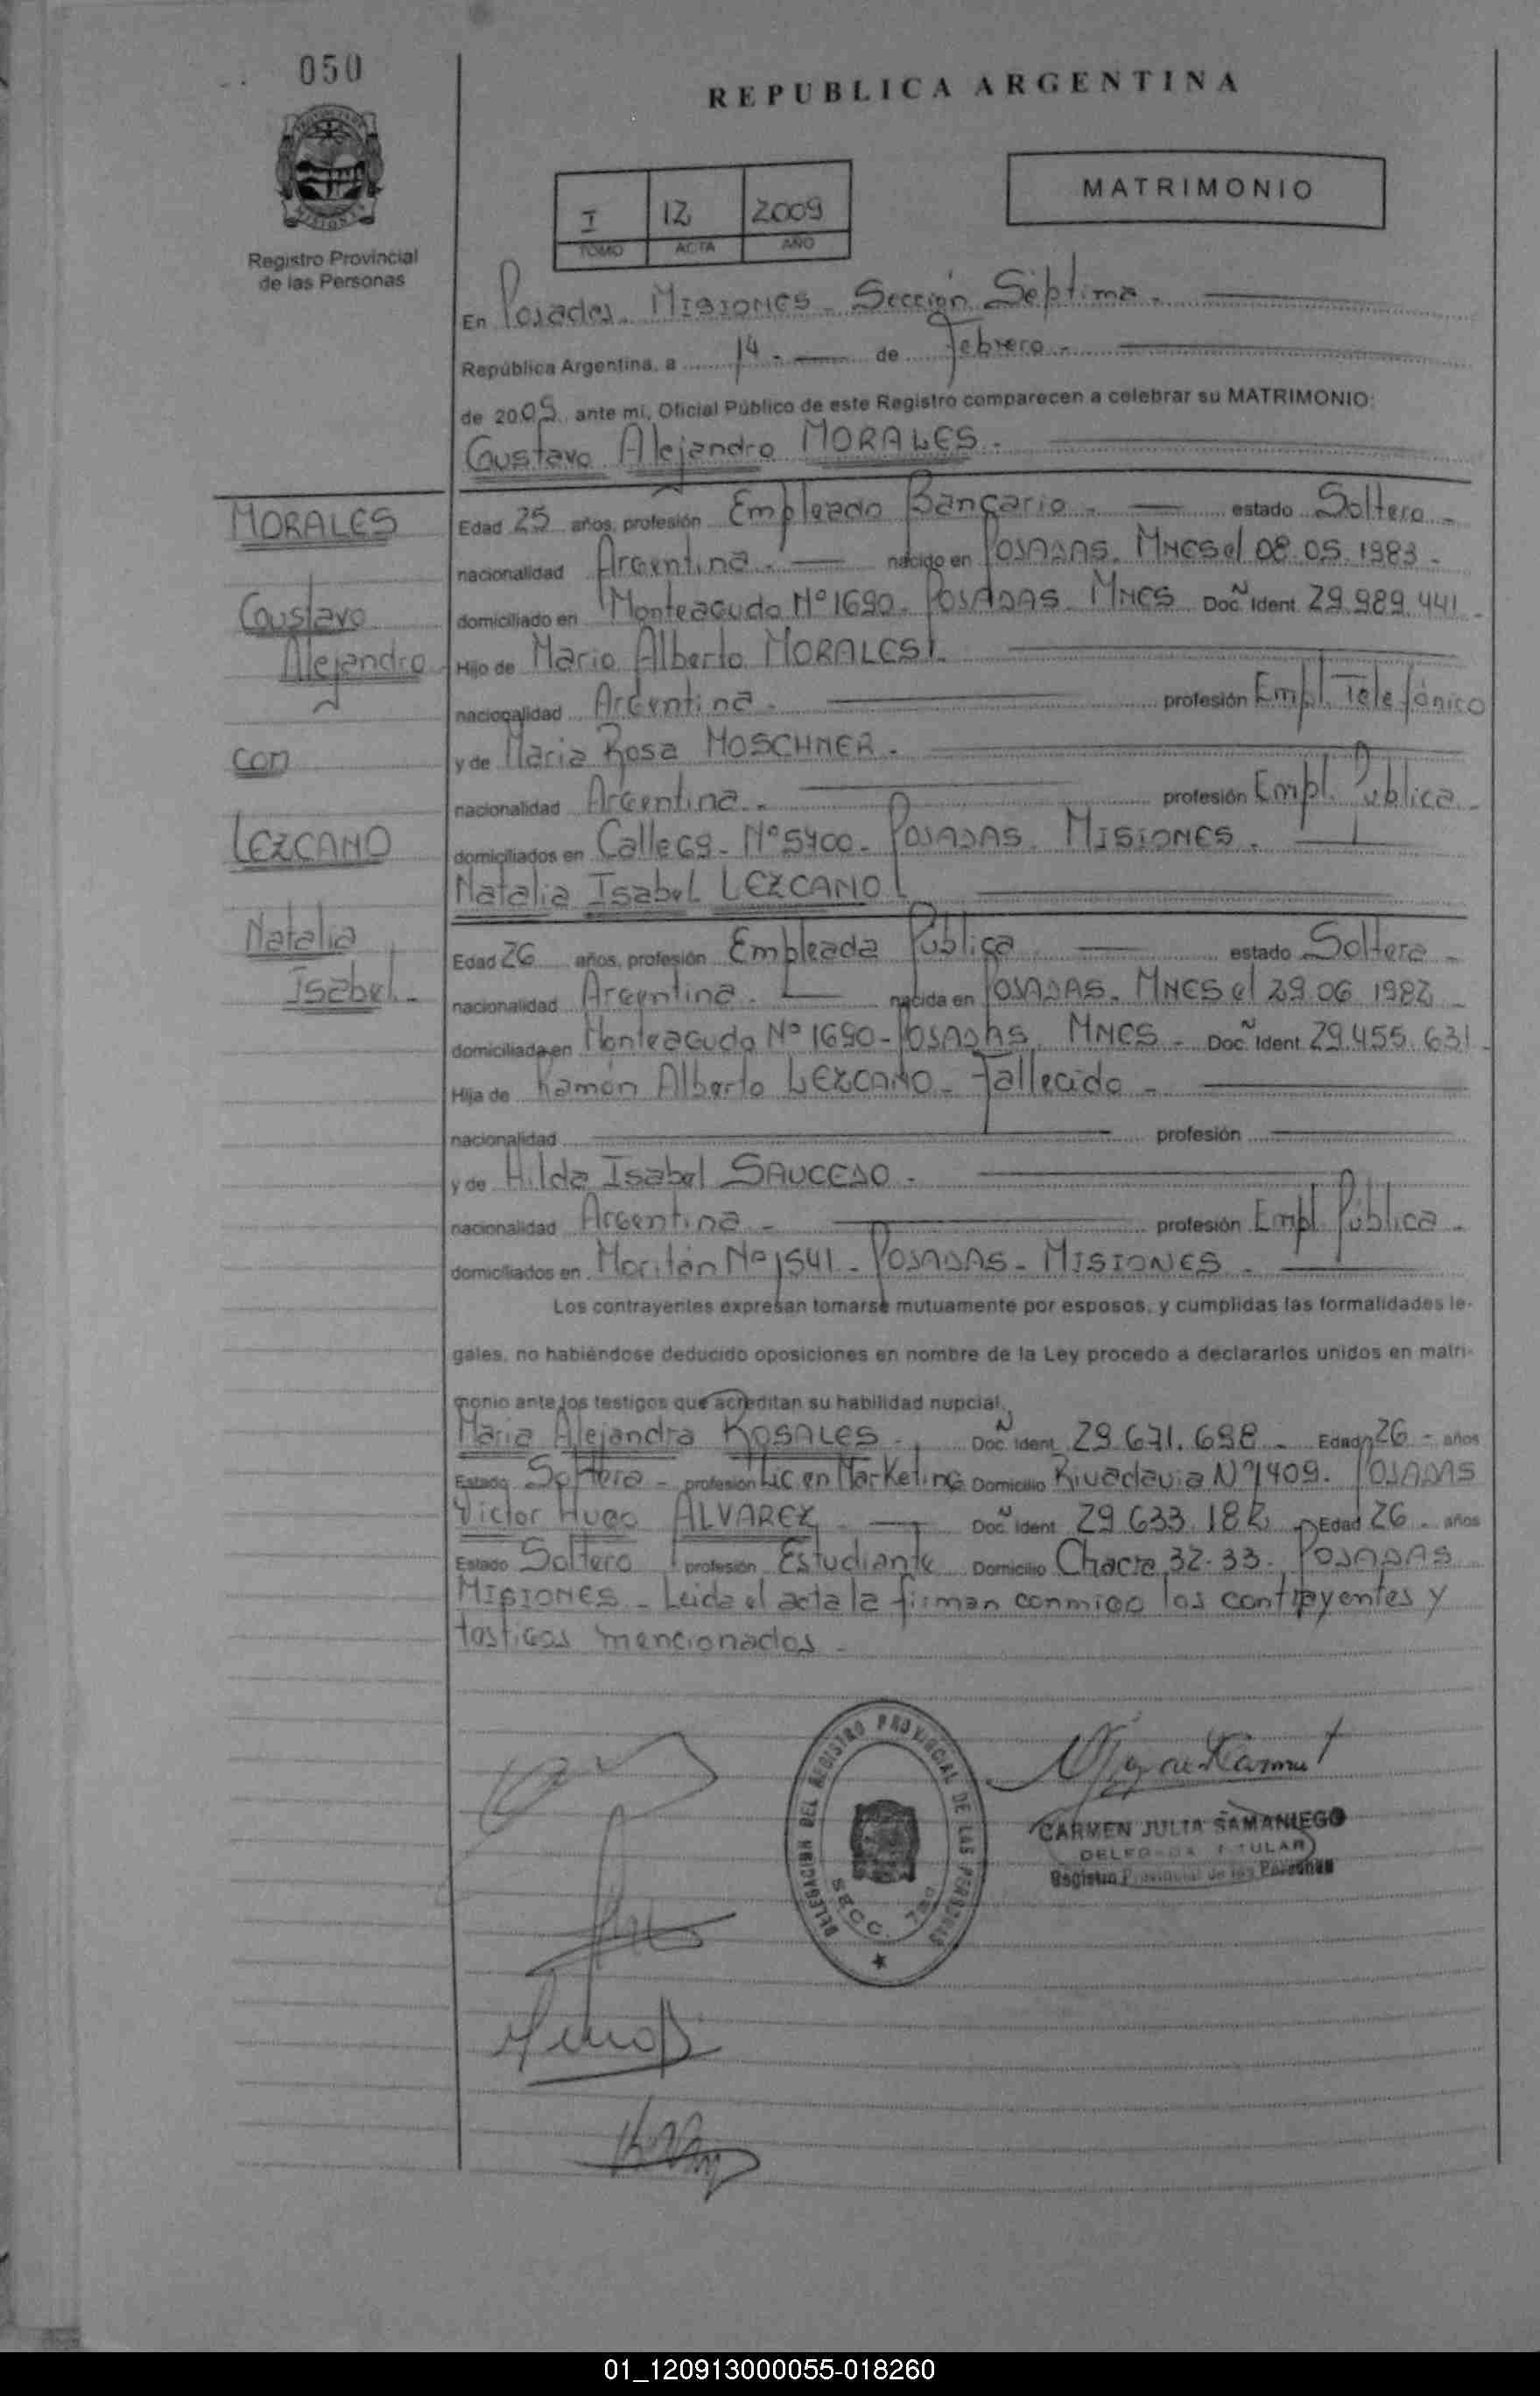 050
REPUBLICA ARGENTINA
MATRIMONIO
I 12 2009
TOMO ACTA AÑO
Registro Provincial
de las Personas
En Posadas. MISIONES - Sección Séptima.
República Argentina, a 14. de Febrero.
de 2009. ante mí, Oficial Público de este Registro comparecen a celebrar su MATRIMONIO:
Gustavo Alejandro MORALES.
MORALES
Gustavo
Alejandro
con
LEZCANO
Natalia
Isabel.-
Edad 25 años, profesión Empleado Bancario - estado Soltero -
nacionalidad Argentina. nacido en POSADAS. MNES el 08.05.1983 -
domiciliado en Monteagudo Nº 1690. POSADAS. MNES Doc. Ident. 29.989.441 -
Hijo de Mario Alberto MORALES.
nacionalidad Argentina. profesión Empl. Telefónico
y de María Rosa MOSCHNER.
nacionalidad Argentina. profesión Empl. Pública -
domiciliados en Calle 69 - Nº 5400 - POSADAS. MISIONES.
Natalia Isabel LEZCANO
Edad 26 años, profesión Empleada Pública estado Soltera -
nacionalidad Argentina. nacida en POSADAS. MNES el 29.06 1982 -
domiciliada en Monteagudo Nº 1690 - POSADAS. MNES - Doc. Ident. 29.455.631 -
Hija de Ramón Alberto LEZCANO - Fallecido -
nacionalidad profesión
y de Hilda Isabel SAUCEDO.
nacionalidad Argentina - profesión Empl. Pública -
domiciliados en Nº 1541 - POSADAS - MISIONES -
Los contrayentes expresan tomarse mutuamente por esposos, y cumplidas las formalidades le-
gales, no habiéndose deducido oposiciones en nombre de la Ley procedo a declararlos unidos en matri-
monio ante los testigos que acreditan su habilidad nupcial.
María Alejandra ROSALES - Doc. Ident. 29.671.698 - Edad 26 - años
Estado Soltera - profesión Lic en Marketing Domicilio Rivadavia Nº 1409. POSADAS
Victor Hugo ALVAREZ Doc. Ident. 29.633.182 Edad 26 - años
Estado Soltero profesión Estudiante Domicilio Chacra 32-33. POSADAS
MISIONES - Leida el acta la firman conmigo los contrayentes y
testigos mencionados -
DELEGACION DEL REGISTRO PROVINCIAL DE LAS PERSONAS
SECC. 7ma
CARMEN JULIA SAMANIEGO
DELEGADA TITULAR
Registro Provincial de las Personas
01_120913000055-018260